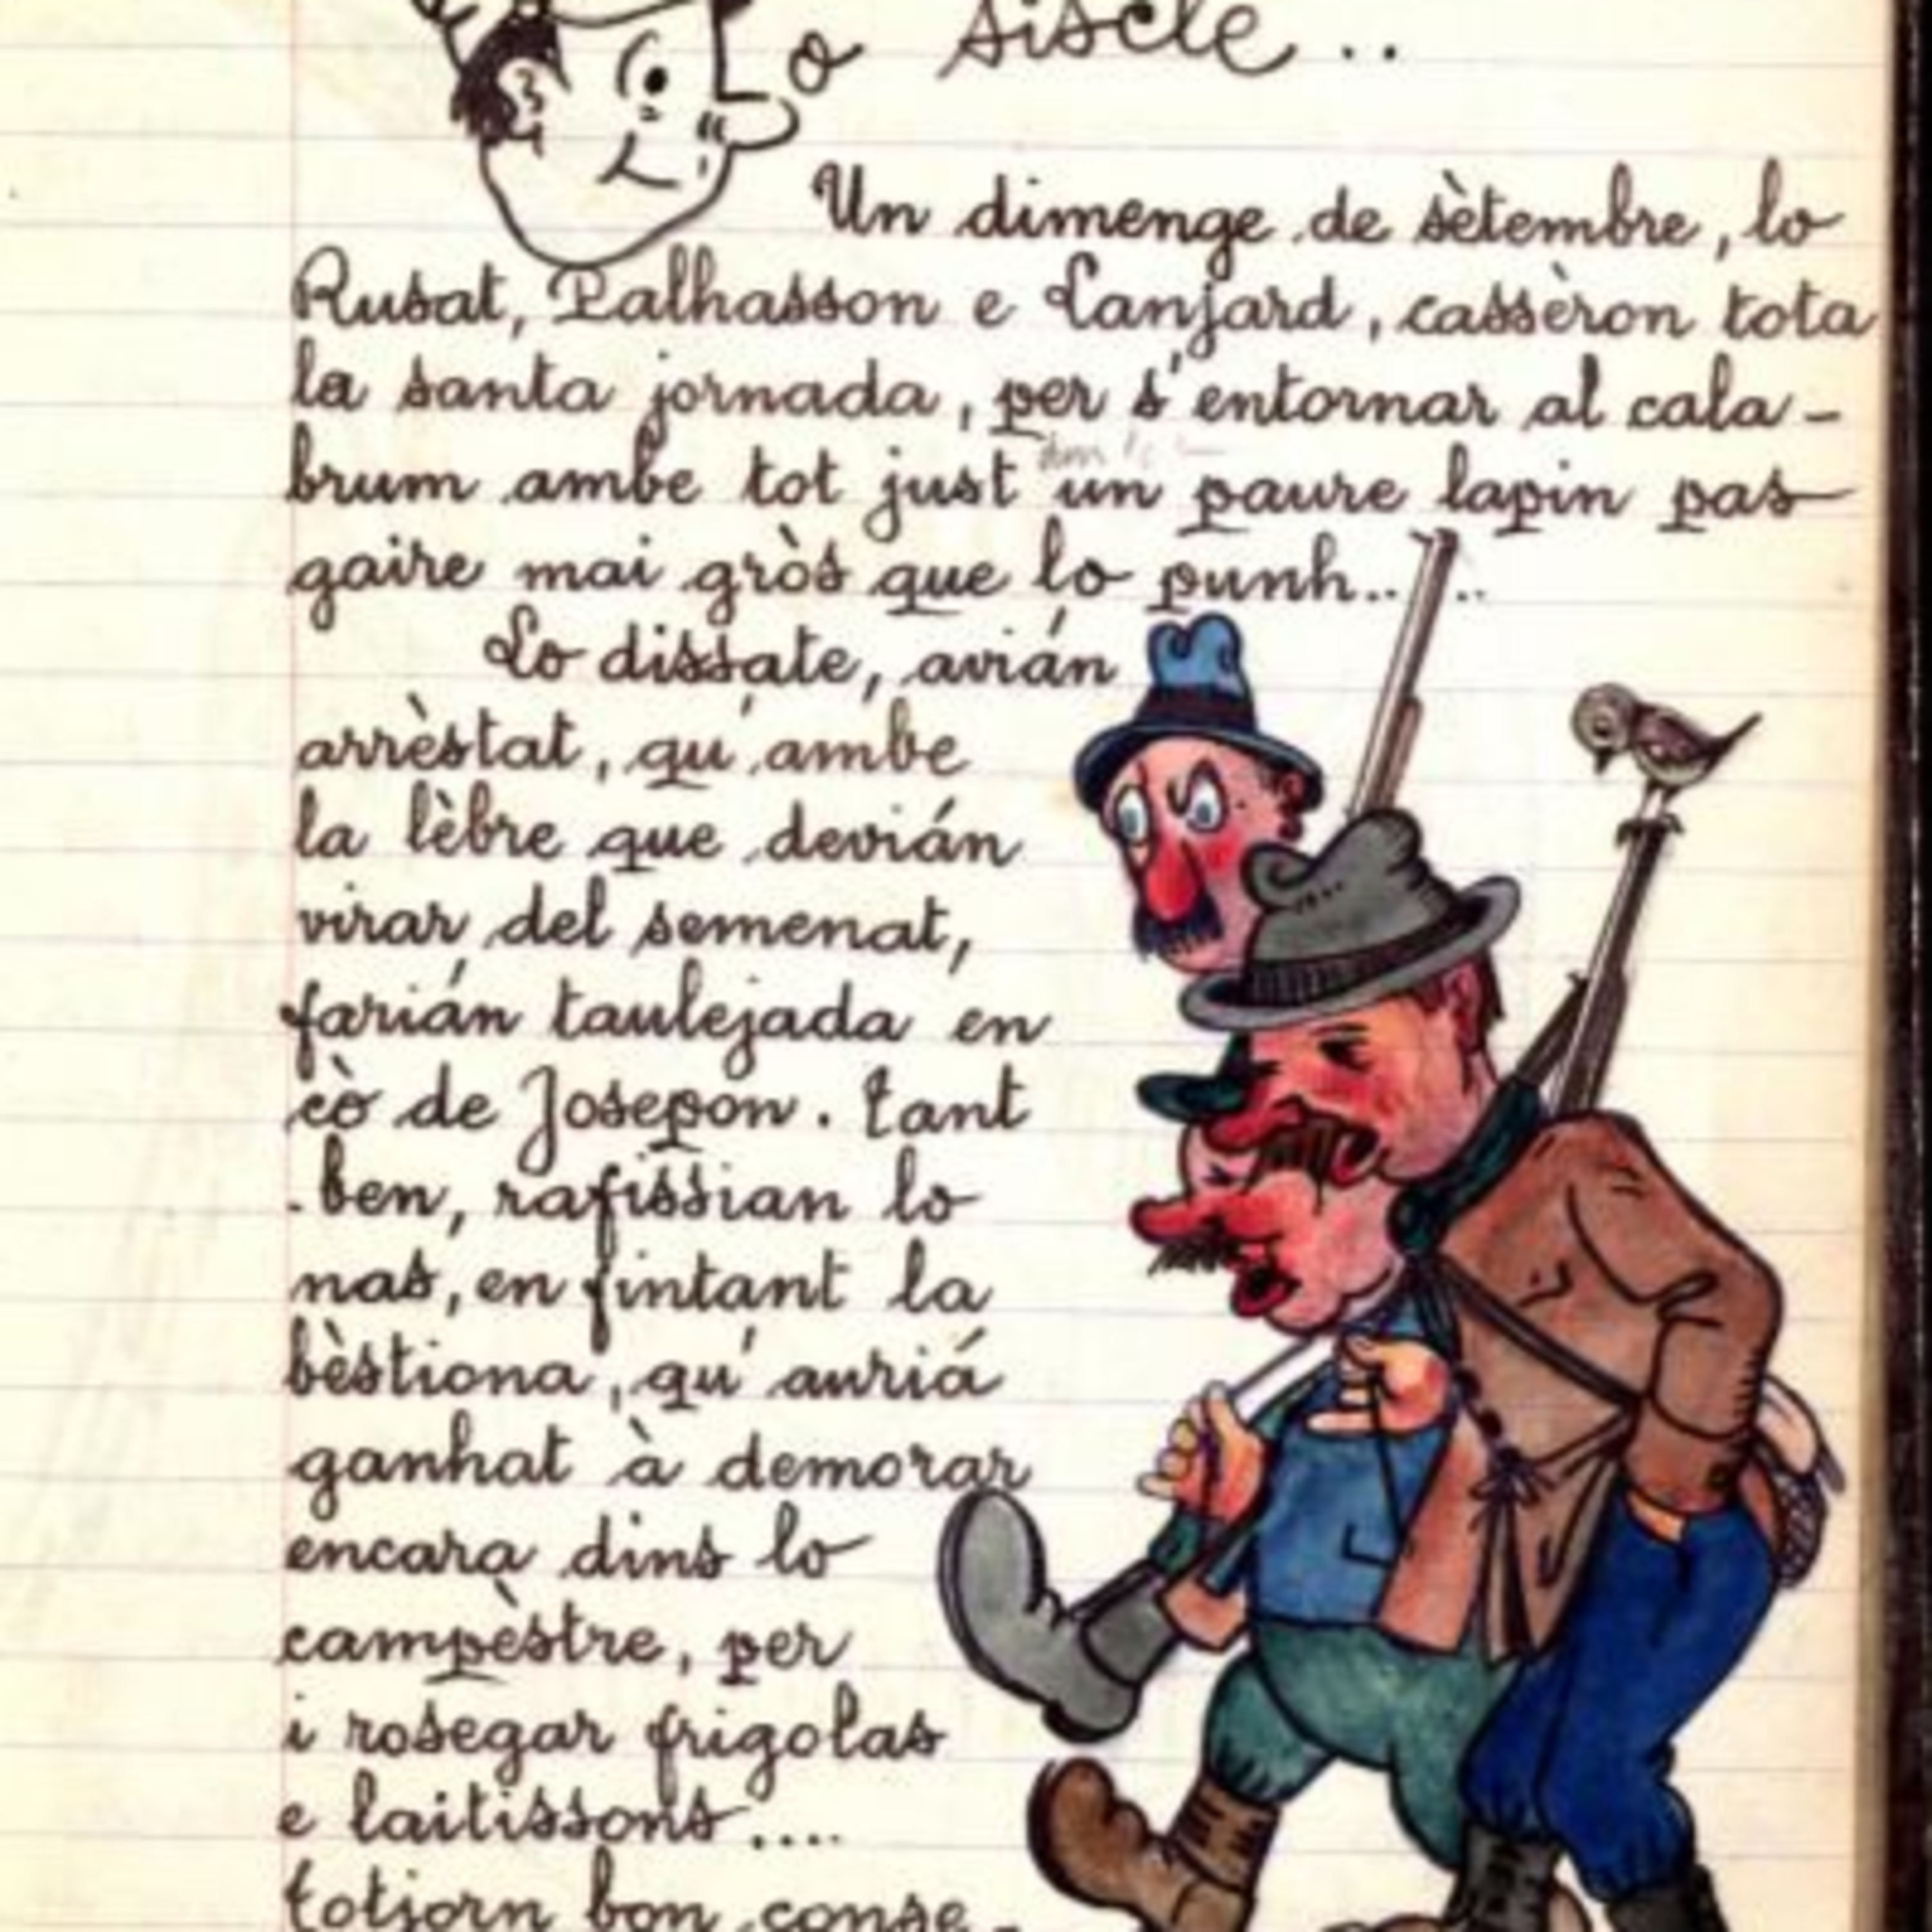 Lo siscle..
Un dimenge de sètembre, lo
Rusat, Palhasson e Lanjard, cassèron tota
la santa jornada, per s'entornar al cala-
brum ambe tot just un paure lapin pas
gaire mai gròs que lo punh.. ..
Lo dissate, avián
arrèstat, qu'ambe
la lèbre que devián
virar del semenat,
farián taulejada en
cò de Josepon. Tant
ben, rafissian lo
nas, en fintant la
bèstiona, qu'auriá
ganhat à demorar
encara dins lo
campèstre, per
i rosegar frigolas
e laitissons....
Totjorn bon conse-